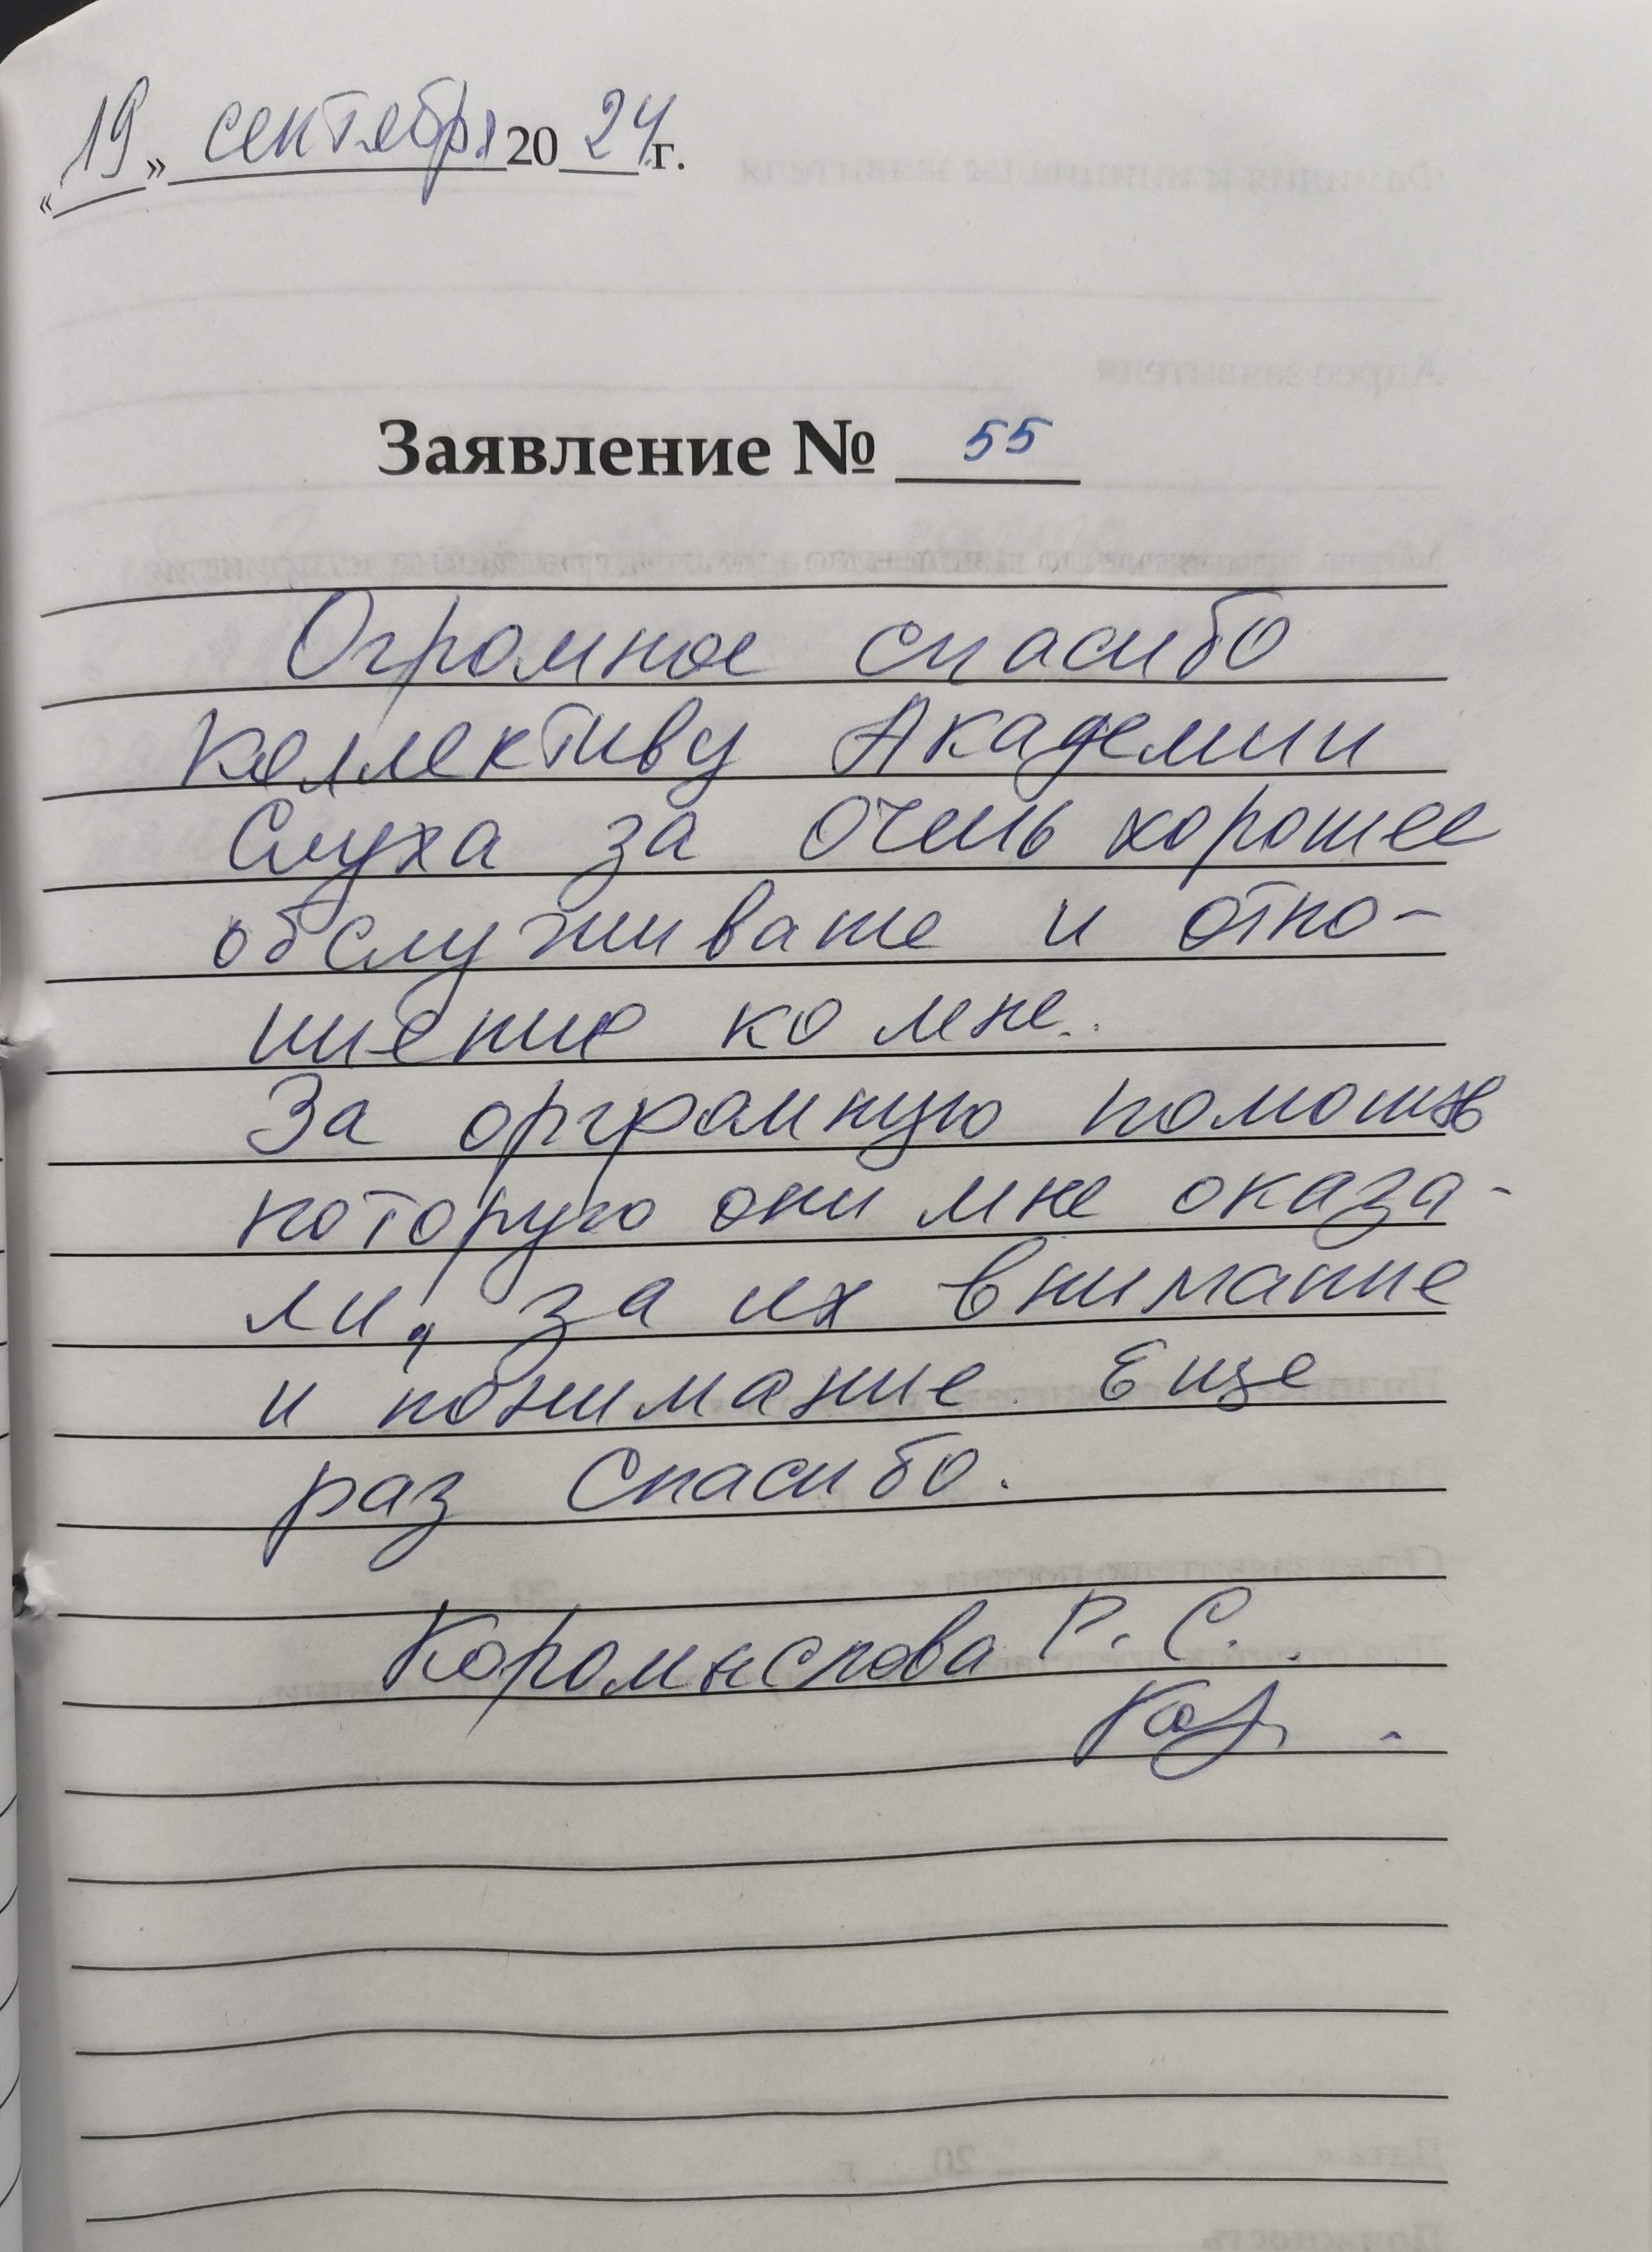 «19» сентября 2024г.
Заявление № 55
Огромное спасибо
коллективу Академии
Слуха за очень хорошее
обслуживание и отно-
шение ко мне.
За оргромную помощь
которую они мне оказа-
ли, за их внимание
и понимание. Еще
раз Спасибо.
Коромыслова Р. С.
Кор